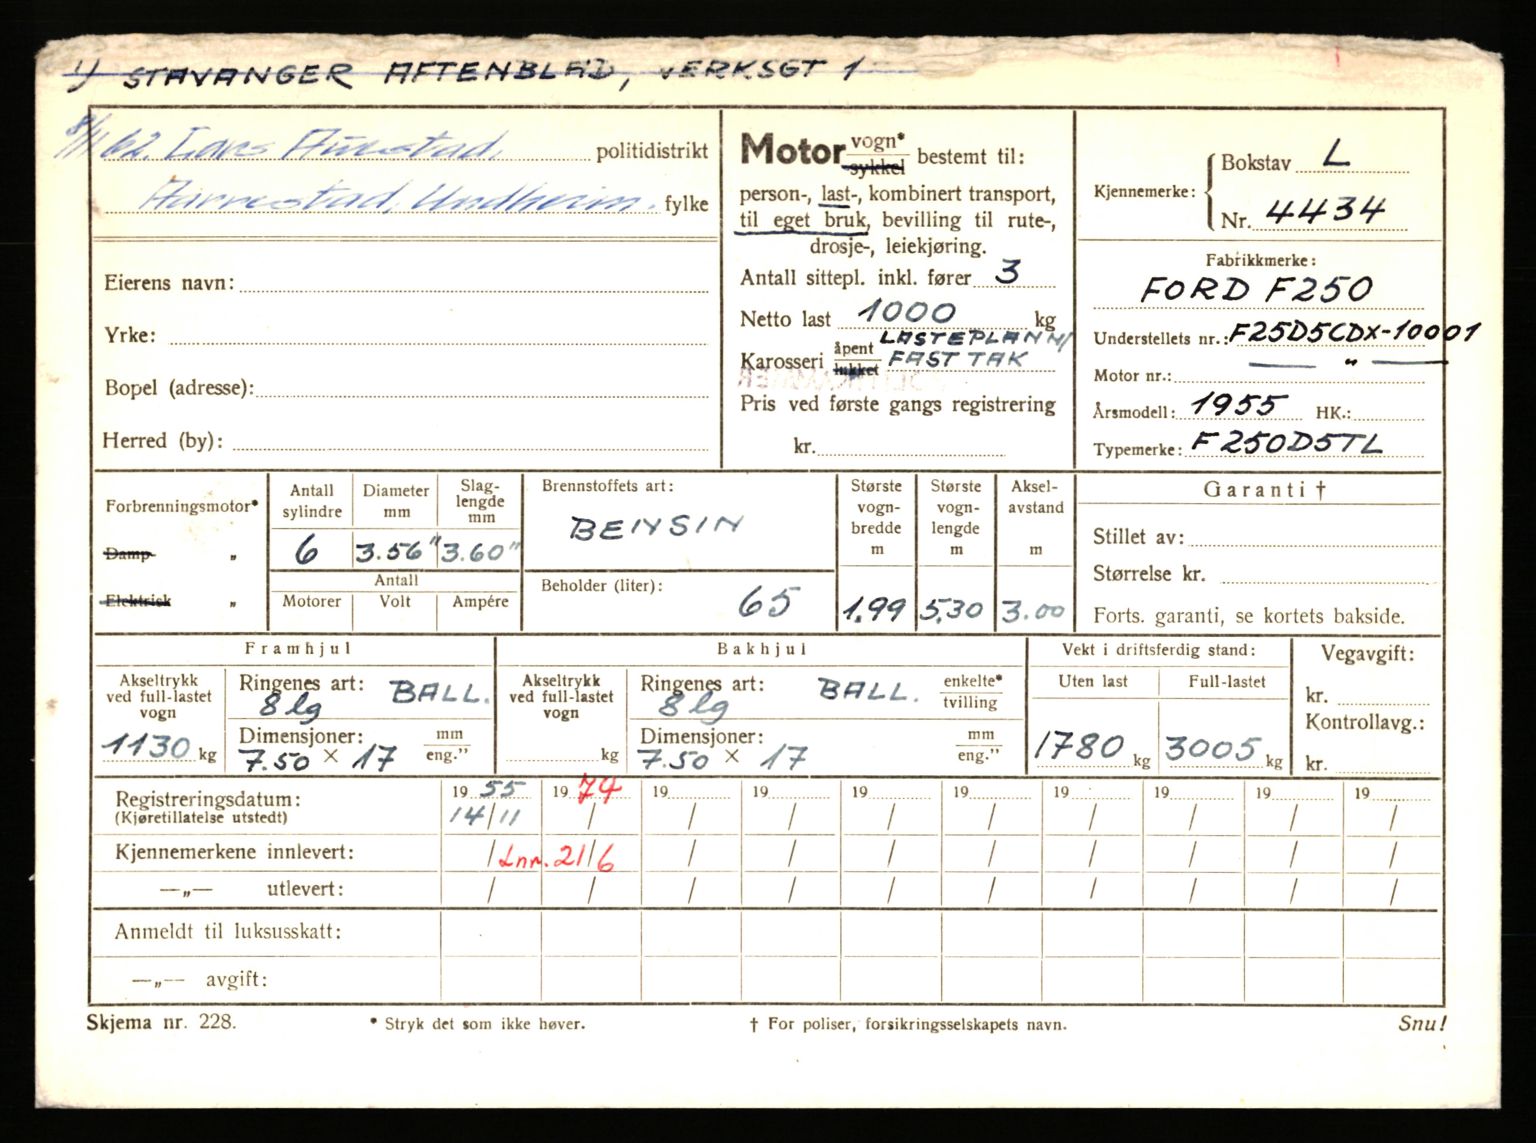 1) STAVANGER AFTENBLAD, VERKSGT 1
8/11 62. Lars Aurestad, politidistrikt
Undheim. fylke
Eierens navn:
Yrke:
Bopel (adresse):
Herred (by):
Motor vogn* sykkel bestemt til:
person-, last-, kombinert transport,
til eget bruk, bevilling til rute-,
drosje-, leiekjøring.
Antall sittepl. inkl. fører 3
Netto last 1000 kg
Karosseri åpent lukket LASTEPLAN M/ FAST TAK
Pris ved første gangs registrering
kr.
Kjennemerke: Bokstav L
Nr. 4434
Fabrikkmerke:
FORD F250
Understellets nr.: F25D5CDX-10001
Motor nr.: — „ —
Årsmodell: 1955 HK.:
Typemerke: F250D5TL
Forbrenningsmotor*
Damp „
Elektrisk „
Antall sylindre 6
Diameter mm 3.56"
Slaglengde mm 3.60"
Antall
Motorer Volt Ampére
Brennstoffets art:
BENSIN
Beholder (liter):
65
Største vogn-bredde m 1.99
Største vogn-lengde m 5.30
Aksel-avstand m 3.00
Garanti †
Stillet av:
Størrelse kr.
Forts. garanti, se kortets bakside.
Framhjul
Akseltrykk ved full-lastet vogn 1130 kg
Ringenes art: BALL.
8 lg
Dimensjoner: mm eng."
7.50 × 17
Bakhjul
Akseltrykk ved full-lastet vogn kg
Ringenes art: BALL. enkelte* tvilling
8 lg
Dimensjoner: mm eng."
7.50 × 17
Vekt i driftsferdig stand:
Uten last 1780 kg
Full-lastet 3005 kg
Vegavgift:
kr.
Kontrollavg.:
kr.
Registreringsdatum: 19 55 19 74 19 19 19 19 19 19 19 19
(Kjøretillatelse utstedt) 14/11 / / / / / / / / /
Kjennemerkene innlevert: / Lnr. 21/6 / / / / / / / /
—„— utlevert: / / / / / / / / / /
Anmeldt til luksusskatt:
—„— avgift:
Skjema nr. 228. * Stryk det som ikke høver. † For poliser, forsikringsselskapets navn. Snu!